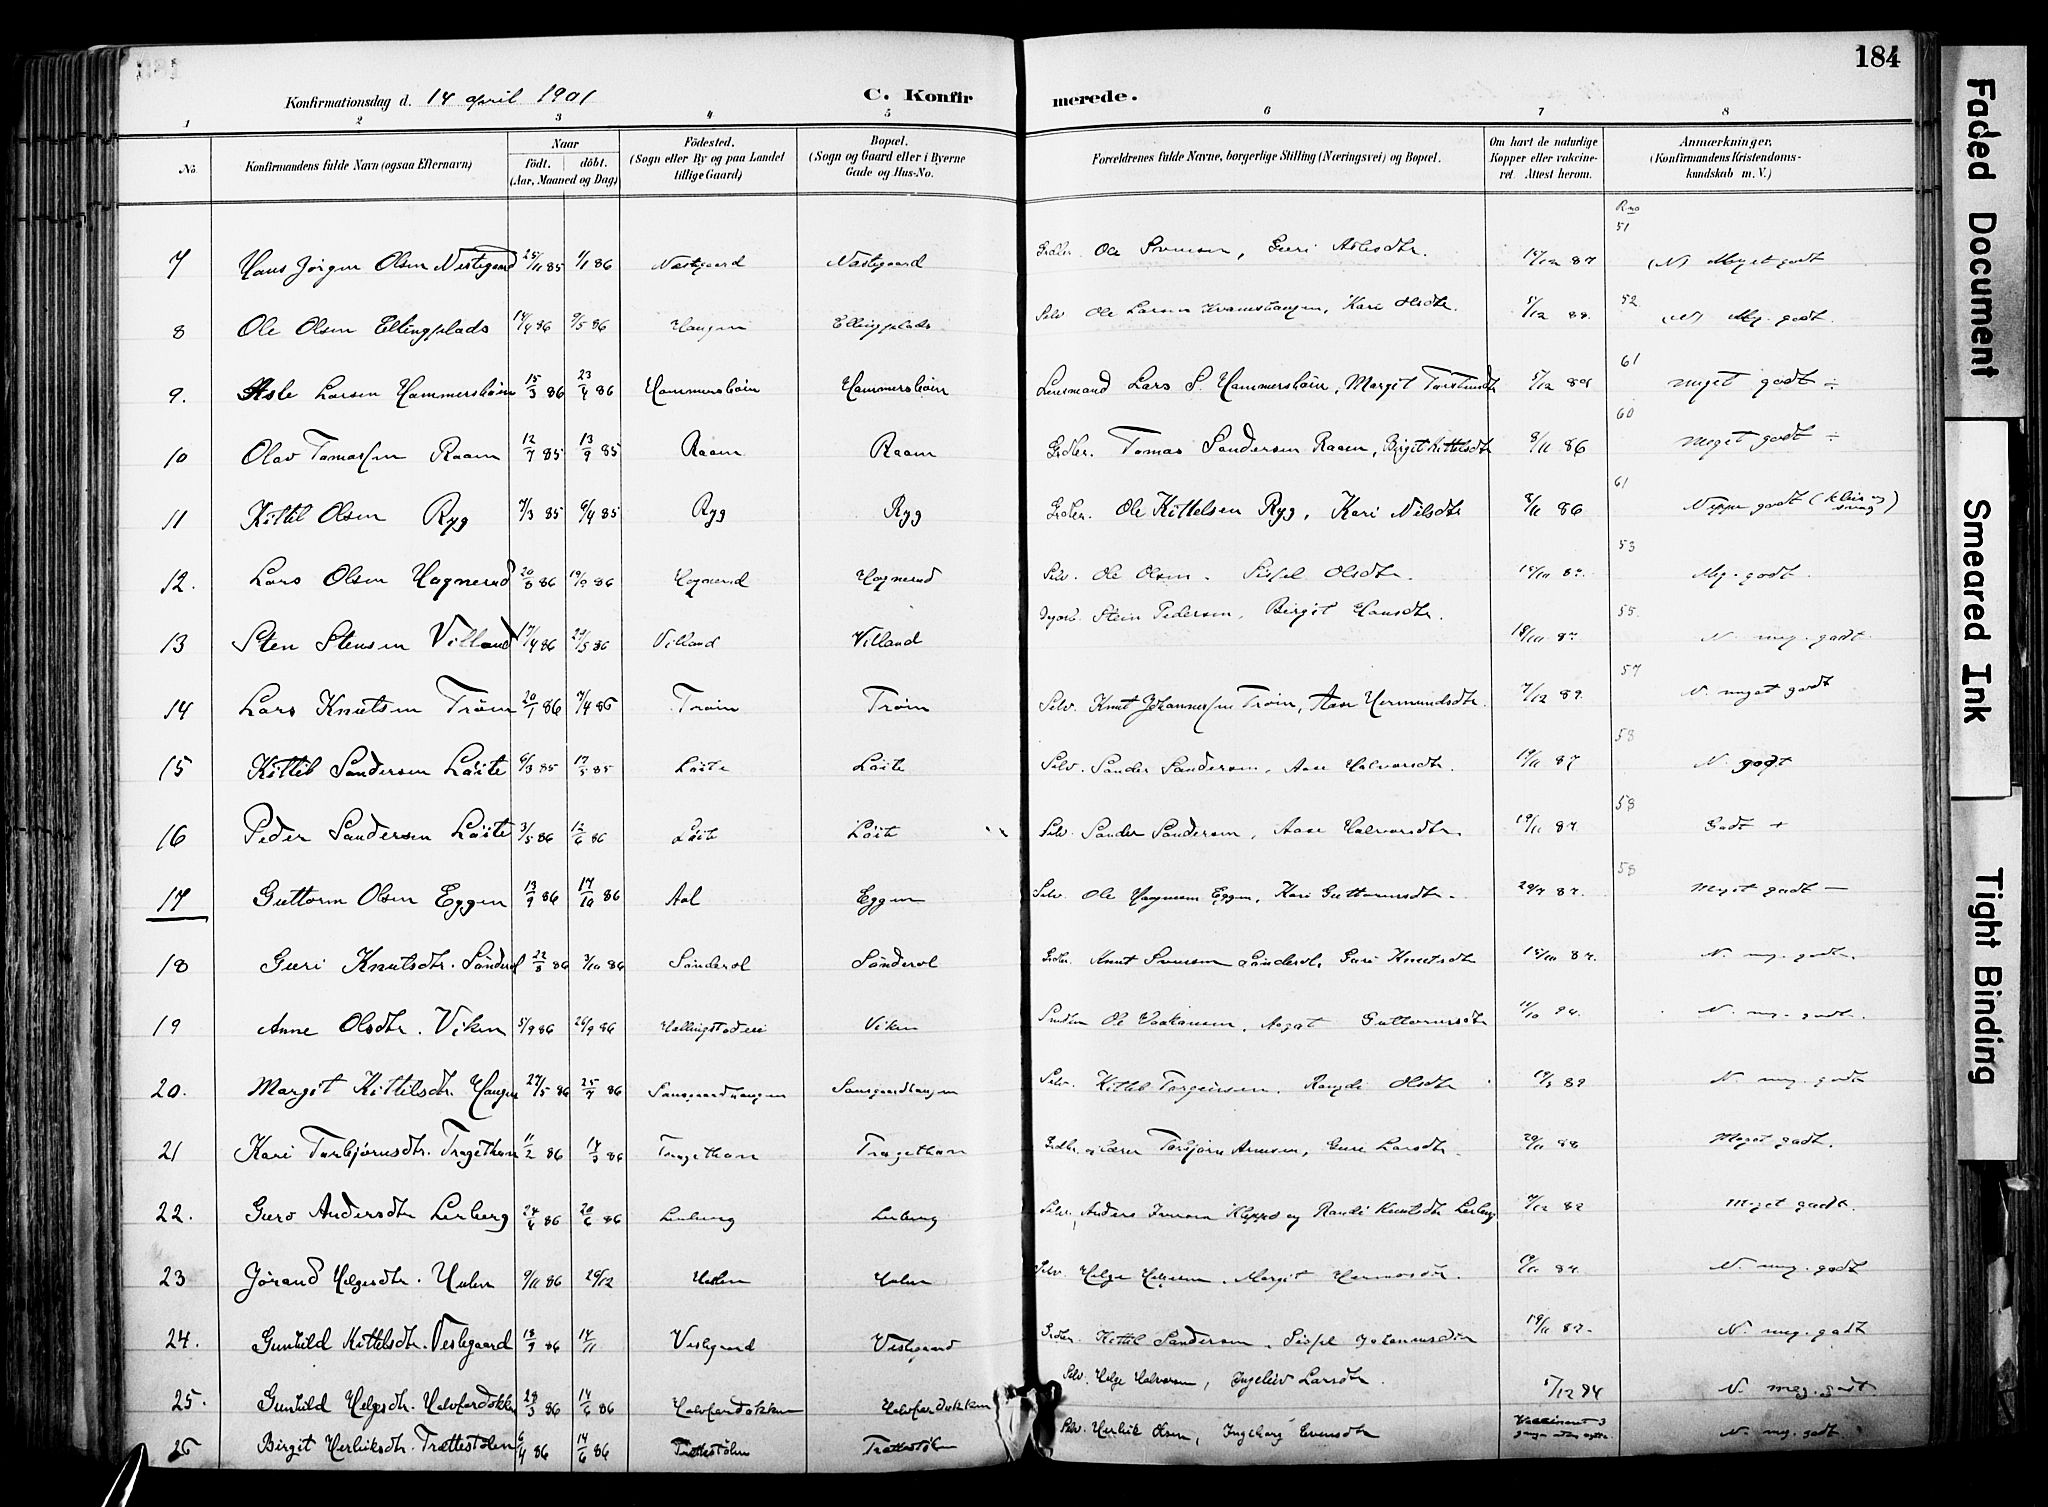 184
Konfirmationsdag d. 14 april 1901
C. Konfirmerede.
1 2 3 4 5 6 7 8
No.
Konfirmandens fulde Navn (ogsaa Efternavn)
Naar
födt. döbt.
(Aar, Maaned og Dag)
Födested.
(Sogn eller By og paa Landet
tillige Gaard)
Bopæl.
(Sogn og Gaard eller i Byerne
Gade og Hus-No.
Forældrenes fulde Navne, borgerlige Stilling (Næringsvei) og Bopæl.
Om havt de naturlige
Kopper eller vakcine-
ret. Attest herom.
Anmærkninger.
(Konfirmandens Kristendoms-
kundskab m. V.)
7 Hans Jørgen Olsen Nestegaard 25/11 85 1/1 86 Nestegaard Nestegaard Ole Svensen, Guri Aslesdtr. 87 51 (N) Meget godt
8 Ole Olsen Ellingplads 86 9/5 86 Haugen Ellingplads Selv. Ole Larsen, Kari Olsdtr. 5/12 52 (N) Meg. godt.
9. Asle Larsen Hammersbøin 15/3 86 23/4 86 Hammersbøin Hammersbøin Lensmand Lars S. Hammersbøin, Margit 5/12 61 Meget godt ÷
10 Olav Tomassen Raaen 12/7 85 13/9 85 Raaen Raaen Grdbr. Tomas Sandersen Raaen, Birgit Kittelsdtr 8/11 86 60 Meget godt ÷
11 Kittil Olsen Ryg 7/3 85 6/4 85 Ryg Ryg Grdbr. Ole Kittelsen Ryg, Kari Nilsdtr 8/11 86 61 Neppe godt
12. Lars Olsen Hagnerud 20/8 86 19/9 86 Hagnerud Hagnerud Selv. Ole Olsen. Sissel Olsdtr. 53 Meg. godt.
13 Sten Stensen Villand 17/4 86 86 Villand Villand Stein Pedersen, Birgit Hansdtr. 55. N. meg. godt.
14 Lars Knutsen Trøin 20/1 86 7/4 86 Trøin Trøin Selv. Knut Johannessen Trøin, Aase Hermundsdtr. 7/12 57 N. meget godt
15 Kittil Sandersen Løite 6/3 85 17/5 85 Løite Løite Selv. Sander Sandersen, Aase Halvorsdtr. 19/11 87 58 N. godt
16 Peder Sandersen Løite 3/5 86 12/6 86 Løite Løite Selv. Sander Sandersen, Aase Halvorsdtr. 19/11 87. 58 Godt +
17 Guttorm Olsen Eggen 13/9 86 17/10 86 Aal Eggen Selv. Ole Eggen, Kari Guttormsdtr. 87. 58 Meget godt —
18 Guri Knutsdtr. Sønderol 22/8 86 3/10 86 Sønderol Sønderol Grdbr. Knut Svensen Sønderol, Guri Knutsdtr 87. N. meg. godt.
19 Anne Olsdtr. Viken 5/9 86 26/9 86 Viken Ole Haakonsen, Aagot Guttormsdtr 11/10 94. N. meg. godt.
20. Margit Kittilsdtr. Haugen 27/5 86 25/7 86 Sansgaardhaugen Sansgaardhaugen Selv. Kittil Torgeirsen. Rangdi Olsdtr N. meg. godt
21 Kari Torbjørnsdtr. Tragethon 11/2 86 14/3 86 Tragethon Tragethon Grdbr. og Lærer Torbjørn Arnesen, Guri Larsdtr. 20/11 88 Meget godt.
22. Guro Andersdtr Lerberg 24/4 86 20/6 86 Lerberg Lerberg Selv. Anders Iversen Kleppo og Randi Knutsdtr Lerberg 7/12 Meget godt.
23 Jørand Helgesdtr. Hulen 9/11 86 26/12 Hulen Hulen Selv. Helge Helgesen. Margit N. meg. godt
24. Gunhild Kittilsdtr. Vestegaard 13/9 86 14/11 Vestegaard Vestegaard Grdbr. Kittil Sandersen. Sissel Johannesdtr 19/11 87. N. meg. godt
25. Gunhild Helgesdtr. Halvfardokken 29/3 86 14/6 86 Halvfardokken Halvfardokken Selv. Helge Halvorsen, Ingeleiv Larsdtr. 5/12 94 N. meg. godt
26 Birgit Herleiksdtr. Trættestølen 6/4 86 14/6 86 Trættestølen Trættestølen Selv. Herleik Olsen, Ingeborg Evensdtr Vakcineret 3 gange uden N. meg. godt
Faded Document
Smeared Ink
Tight Binding